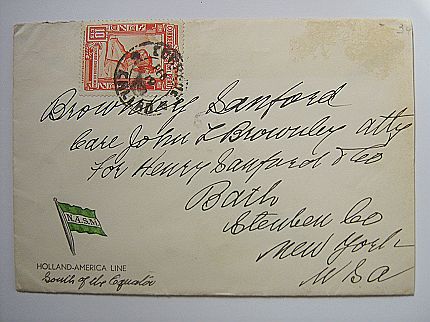 Brownley Sanford
Care John L Brownley atty
for Henry Sanford
Bath
Steuben Co
New York
USA
N.A.S.M.
HOLLAND-AMERICA LINE
South of the Equator